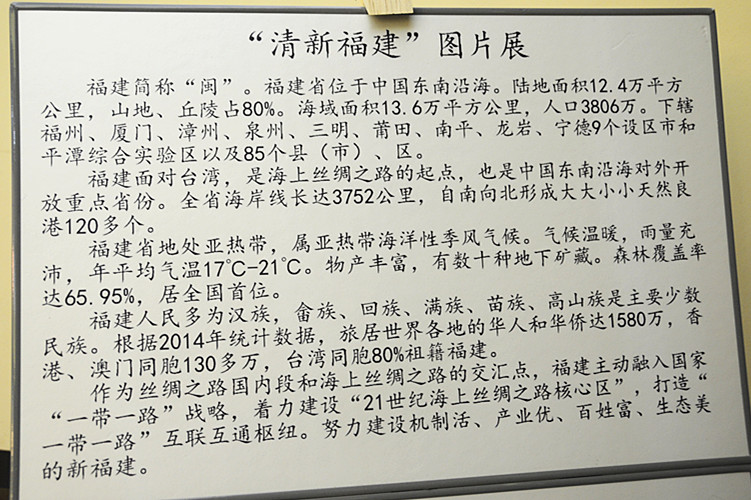 “清新福建”图片展
福建简称“闽”。福建省位于中国东南沿海。陆地面积12.4万平方
公里，山地、丘陵占80%。海域面积13.6万平方公里，人口3806万。下辖
福州、厦门、漳州、泉州、三明、莆田、南平、龙岩、宁德9个设区市和
平潭综合实验区以及85个县（市）、区。
福建面对台湾，是海上丝绸之路的起点，也是中国东南沿海对外开
放重点省份。全省海岸线长达3752公里，自南向北形成大大小小天然良
港120多个。
福建省地处亚热带，属亚热带海洋性季风气候。气候温暖，雨量充
沛，年平均气温17℃-21℃。物产丰富，有数十种地下矿藏。森林覆盖率
达65.95%，居全国首位。
福建人民多为汉族，畲族、回族、满族、苗族、高山族是主要少数
民族。根据2014年统计数据，旅居世界各地的华人和华侨达1580万，香
港、澳门同胞130多万，台湾同胞80%祖籍福建。
作为丝绸之路国内段和海上丝绸之路的交汇点，福建主动融入国家
“一带一路”战略，着力建设“21世纪海上丝绸之路核心区”，打造“
一带一路”互联互通枢纽。努力建设机制活、产业优、百姓富、生态美
的新福建。